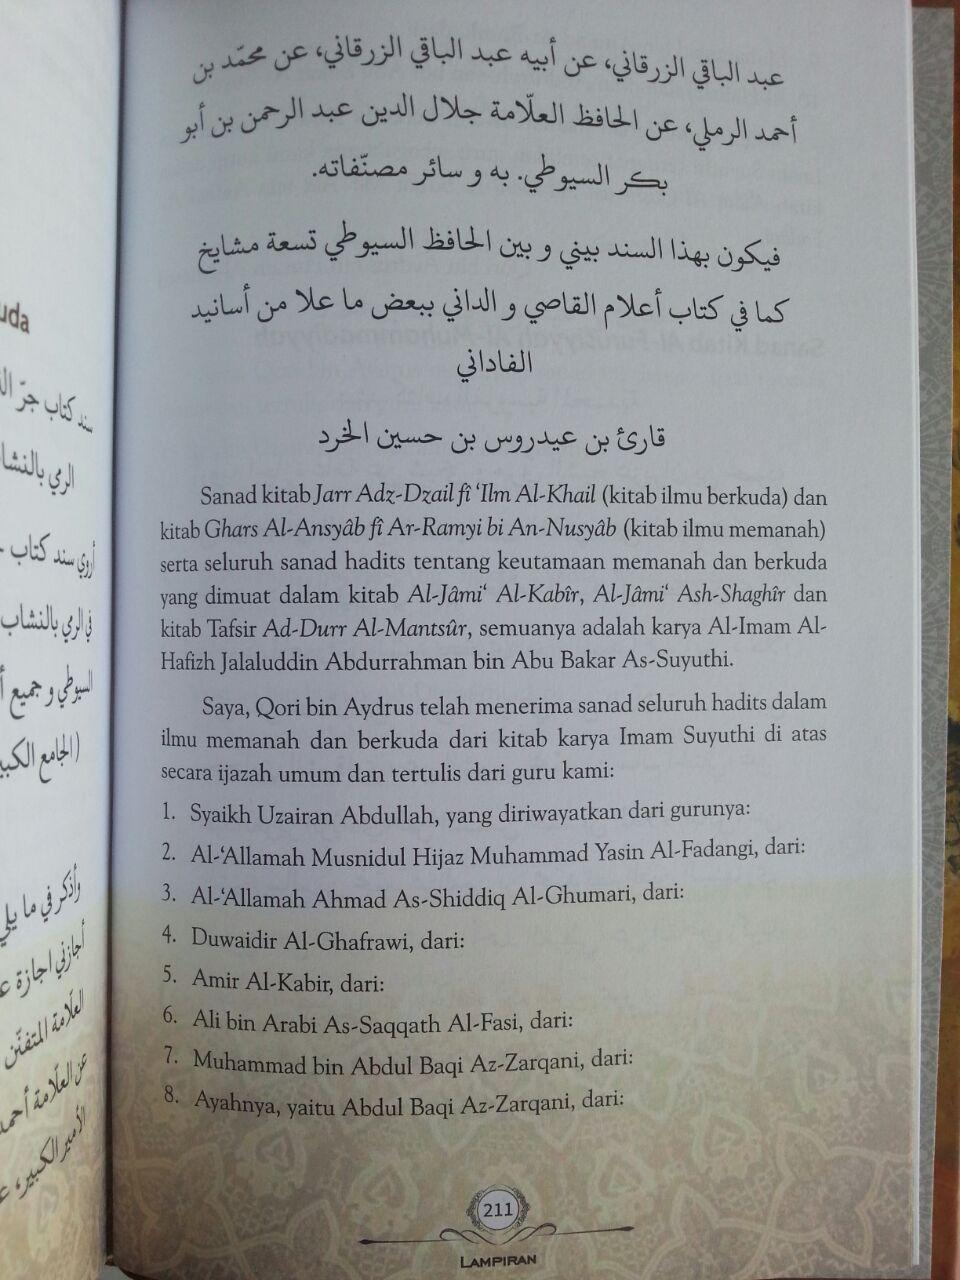 عبد الباقي الزرقاني، عن أبيه عبد الباقي الزرقاني، عن محمّد بن
أحمد الرملي، عن الحافظ العلّامة جلال الدين عبد الرحمن بن أبو
بكر السيوطي. به و سائر مصنّفاته.
فيكون بهذا السند بيني و بين الحافظ السيوطي تسعة مشايخ
كما في كتاب أعلام القاصي و الداني ببعض ما علا من أسانيد
الفاداني
قارئ بن عيدروس بن حسين الخرد
Sanad kitab Jarr Adz-Dzail fî ‘Ilm Al-Khail (kitab ilmu berkuda) dan
kitab Ghars Al-Ansyâb fî Ar-Ramyi bi An-Nusyâb (kitab ilmu memanah)
serta seluruh sanad hadits tentang keutamaan memanah dan berkuda
yang dimuat dalam kitab Al-Jâmi‘ Al-Kabîr, Al-Jâmi‘ Ash-Shaghîr dan
kitab Tafsir Ad-Durr Al-Mantsûr, semuanya adalah karya Al-Imam Al-
Hafizh Jalaluddin Abdurrahman bin Abu Bakar As-Suyuthi.
Saya, Qori bin Aydrus telah menerima sanad seluruh hadits dalam
ilmu memanah dan berkuda dari kitab karya Imam Suyuthi di atas
secara ijazah umum dan tertulis dari guru kami:
1. Syaikh Uzairan Abdullah, yang diriwayatkan dari gurunya:
2. Al-‘Allamah Musnidul Hijaz Muhammad Yasin Al-Fadangi, dari:
3. Al-‘Allamah Ahmad As-Shiddiq Al-Ghumari, dari:
4. Duwaidir Al-Ghafrawi, dari:
5. Amir Al-Kabir, dari:
6. Ali bin Arabi As-Saqqath Al-Fasi, dari:
7. Muhammad bin Abdul Baqi Az-Zarqani, dari:
8. Ayahnya, yaitu Abdul Baqi Az-Zarqani, dari:
211
LAMPIRAN
uda
سند كتاب جرّ
الرمي بالنشا
أروي سند كتاب
في الرمي بالنشاب
السيوطي و جميع
(الجامع الكبي
وأذكر في ما يلي
أجازني اجازة
العلّامة المتفنّن
عن العلّامة أحمد
الأمير الكبير،